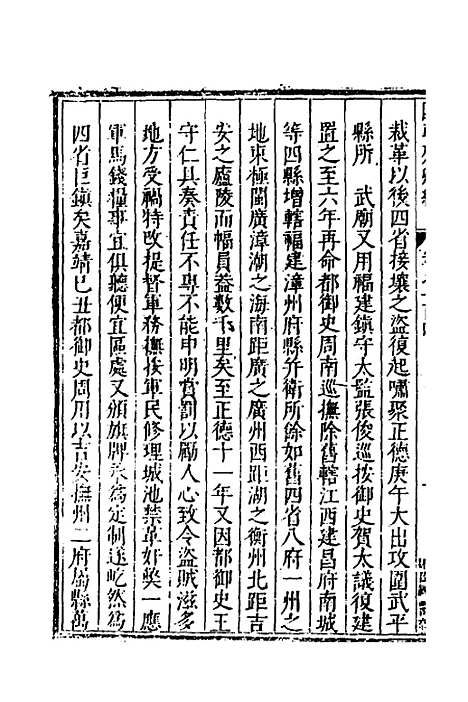 裁革以後四省接壤之盜復起嘯聚正德庚午大出攻圍武平
縣所　武廟又用福建鎮守太監張俊巡按御史賀太議復建
置之至六年再命都御史周南巡撫除舊轄江西建昌府南城
等四縣增轄福建漳州府縣并衛所餘如舊四省八府一州之
地東極閩廣漳潮之海南距廣之廣州西距湖之衡州北距吉
安之廬陵而幅員葢數千里矣至正德十一年又因都御史王
守仁具奏責任不專不能申明賞罰以勵人心致令盜賊滋多
地方受禍特改提督軍務撫按軍民修理城池禁革奸獘一應
軍馬錢糧事宜俱聽便宜區處又頒旗牌永為定制遂屹然為
四省巨鎮矣嘉靖巳丑都御史周用以吉安撫州二府屬縣萬